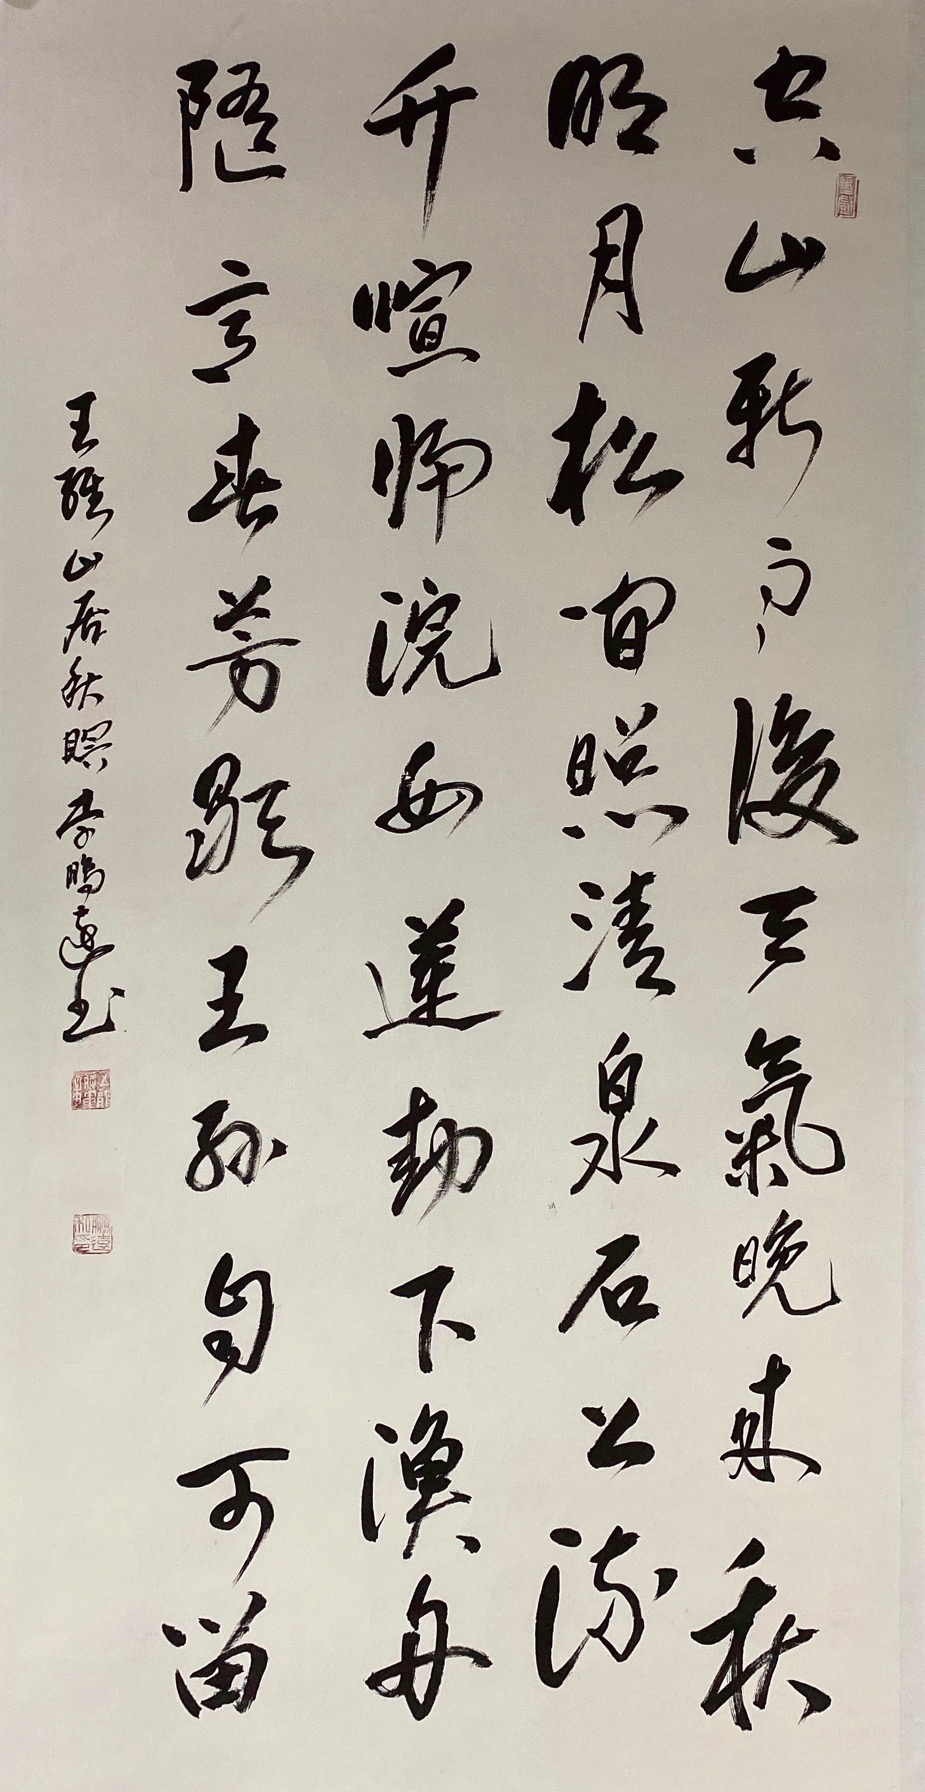 空山新雨後天氣晚来秋
明月松間照清泉石上流
竹喧歸浣女蓮動下漁舟
隨意春芳歇王孫自可留
王維山居秋暝李鵬遠书